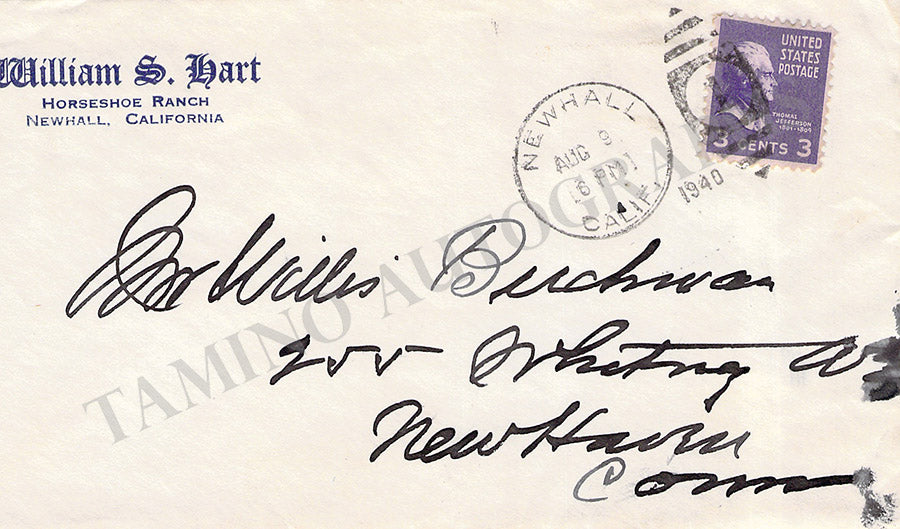 William S. Hart
HORSESHOE RANCH
NEWHALL, CALIFORNIA
NEWHALL
AUG 9
6 PM
CALIF.
1940
UNITED
STATES
POSTAGE
THOMAS
JEFFERSON
1801-1809
3 CENTS 3
Mr Willis Buchman
255 Whitney Av
New Haven
Conn
TAMINO AUTOGRAPHS